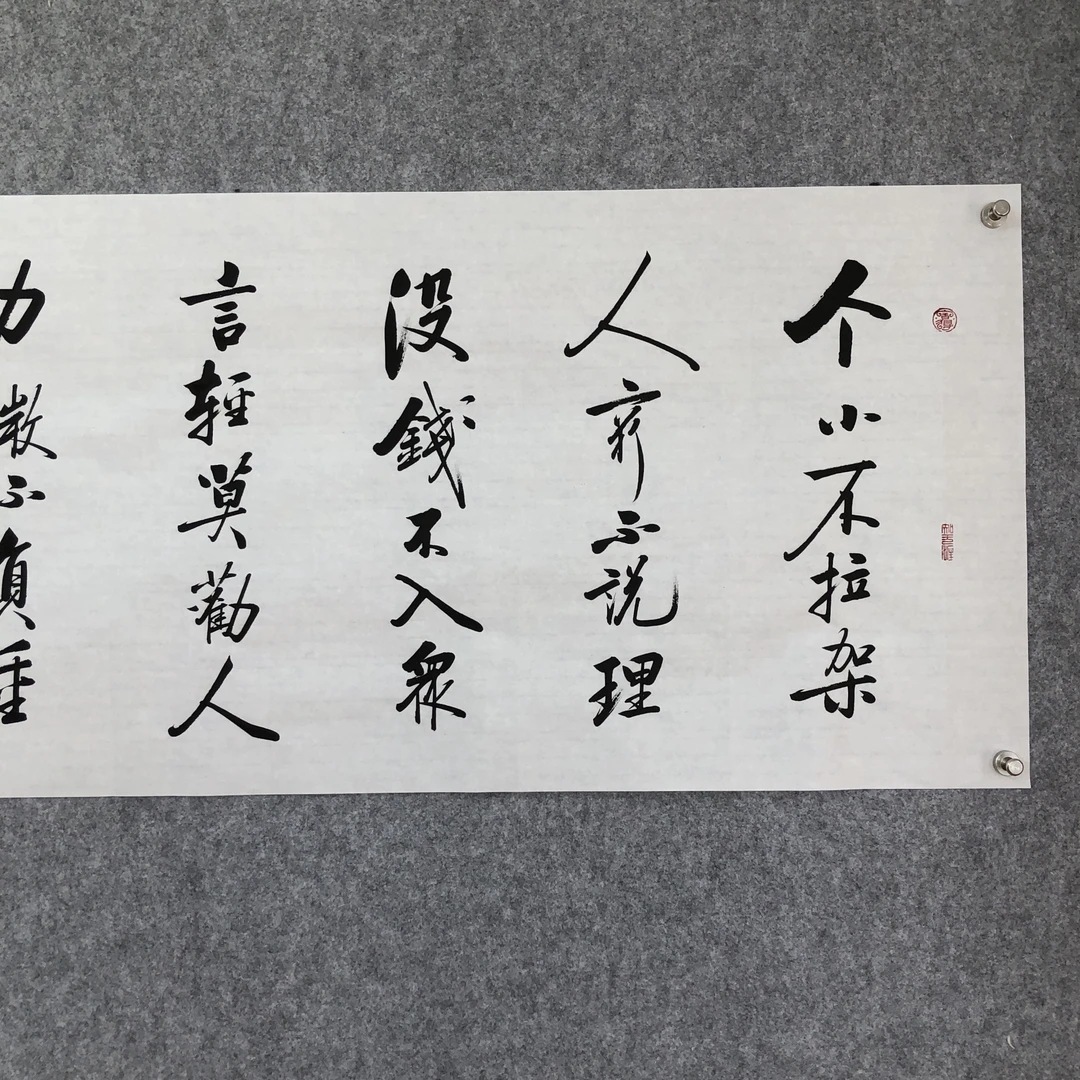 个小不拉架
人窮不説理
没錢不入衆
言輕莫勸人
力微不負重